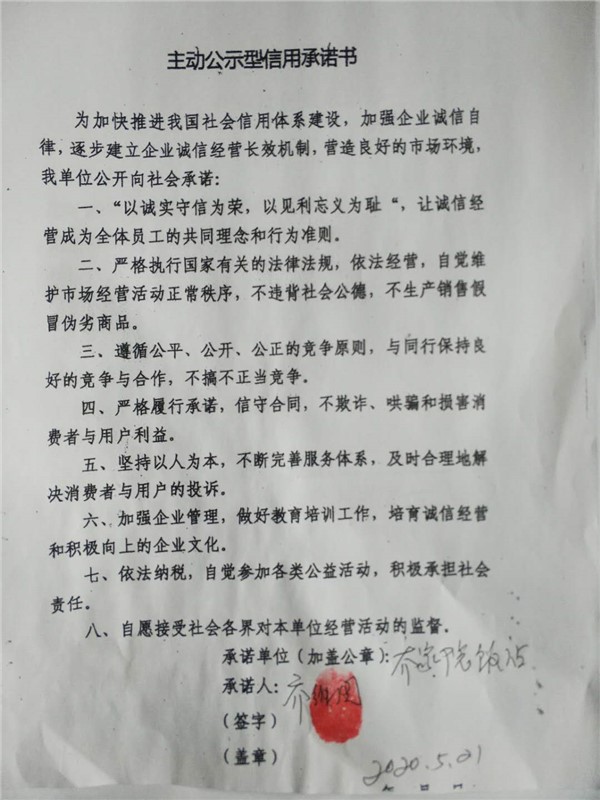 主动公示型信用承诺书
为加快推进我国社会信用体系建设，加强企业诚信自
律，逐步建立企业诚信经营长效机制，营造良好的市场环境，
我单位公开向社会承诺：
一、“以诚实守信为荣，以见利忘义为耻“，让诚信经
营成为全体员工的共同理念和行为准则。
二、严格执行国家有关的法律法规，依法经营，自觉维
护市场经营活动正常秩序，不违背社会公德，不生产销售假
冒伪劣商品。
三、遵循公平、公开、公正的竞争原则，与同行保持良
好的竞争与合作，不搞不正当竞争。
四、严格履行承诺，信守合同，不欺诈、哄骗和损害消
费者与用户利益。
五、坚持以人为本，不断完善服务体系，及时合理地解
决消费者与用户的投诉。
六、加强企业管理，做好教育培训工作，培育诚信经营
和积极向上的企业文化。
七、依法纳税，自觉参加各类公益活动，积极承担社会
责任。
八、自愿接受社会各界对本单位经营活动的监督。
承诺单位（加盖公章）：乔家院饭店
承诺人：乔
（签字）
（盖章）
2020.5.21
年 月 日